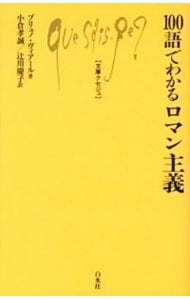 100語でわかるロマン主義
ブリュノ・ヴィアール著
小倉孝誠／辻川慶子訳
Que sais-je?
【文庫クセジュ】
白水社